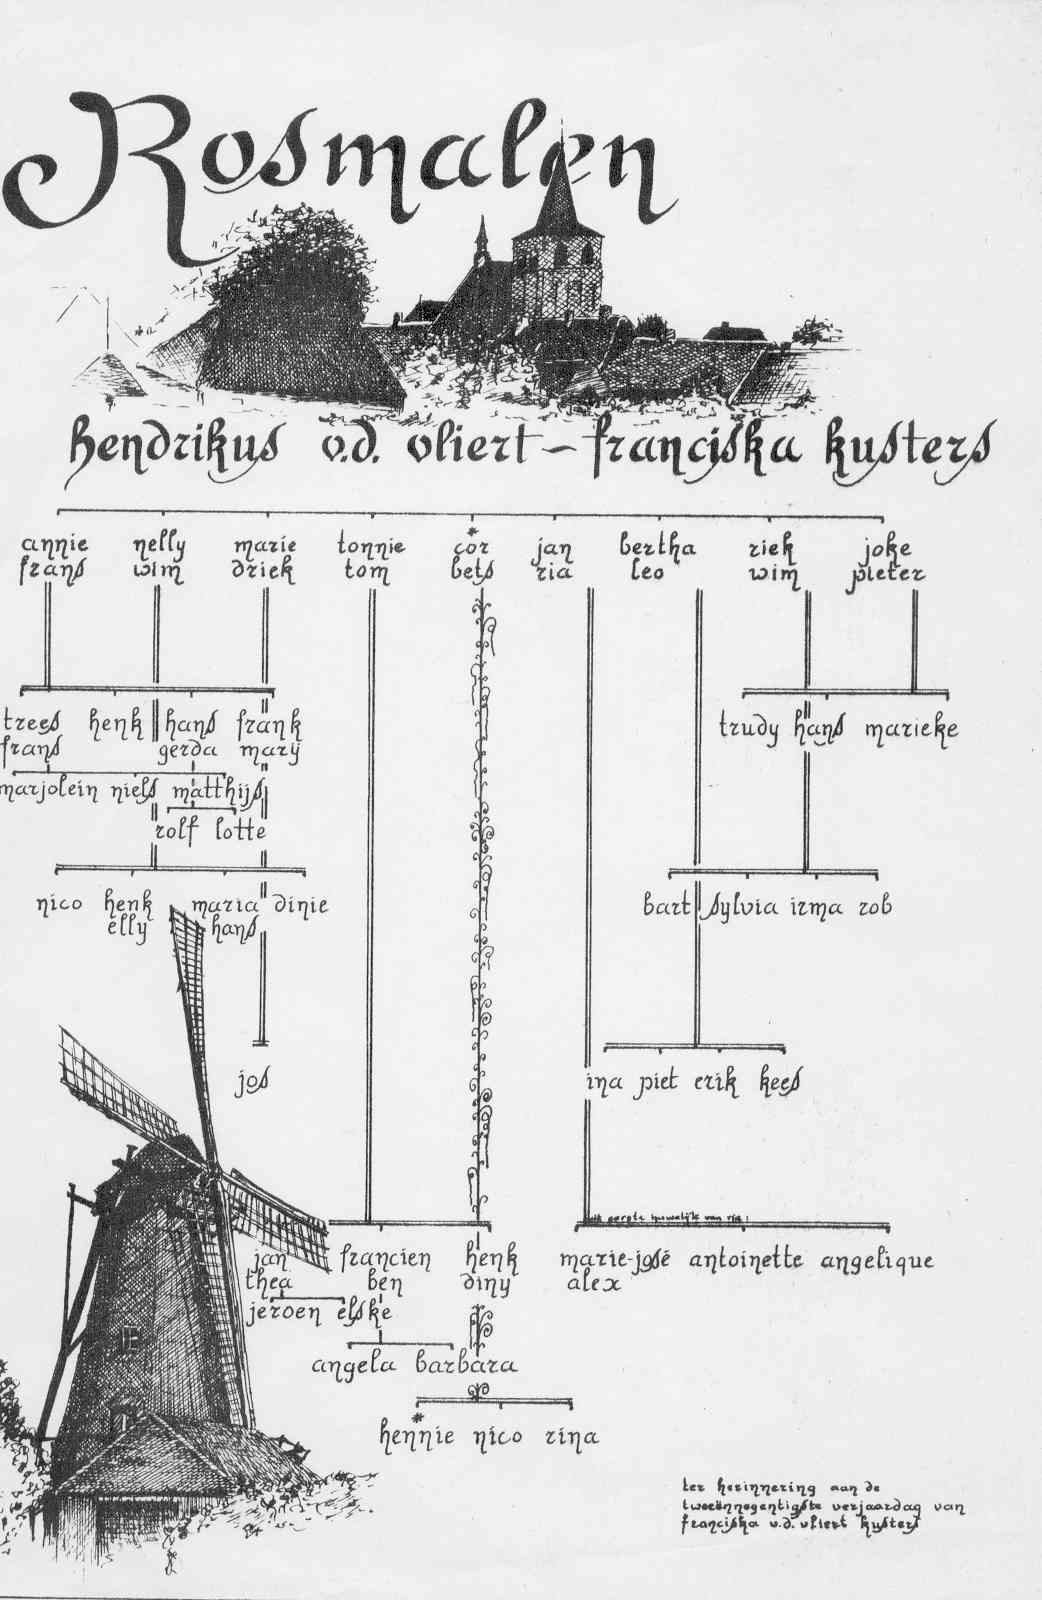 Rosmalen
hendrikus v.d. vliert – franciska kusters
annie nelly marie tonnie *cor jan bertha riek joke
frans wim driek tom bets ria leo wim pieter
trees henk hans frank trudy hans marieke
frans gerda mary
marjolein niels matthijs
rolf lotte
nico henk maria dinie bart sylvia irma rob
elly hans
jos ina piet erik kees
uit eerste huwelijk van ria:
jan francien henk marie-josé antoinette angelique
thea ben diny alex
jeroen elske
angela barbara
*hennie nico rina
ter herinnering aan de
tweeënnegentigste verjaardag van
franciska v.d. vliert kusters